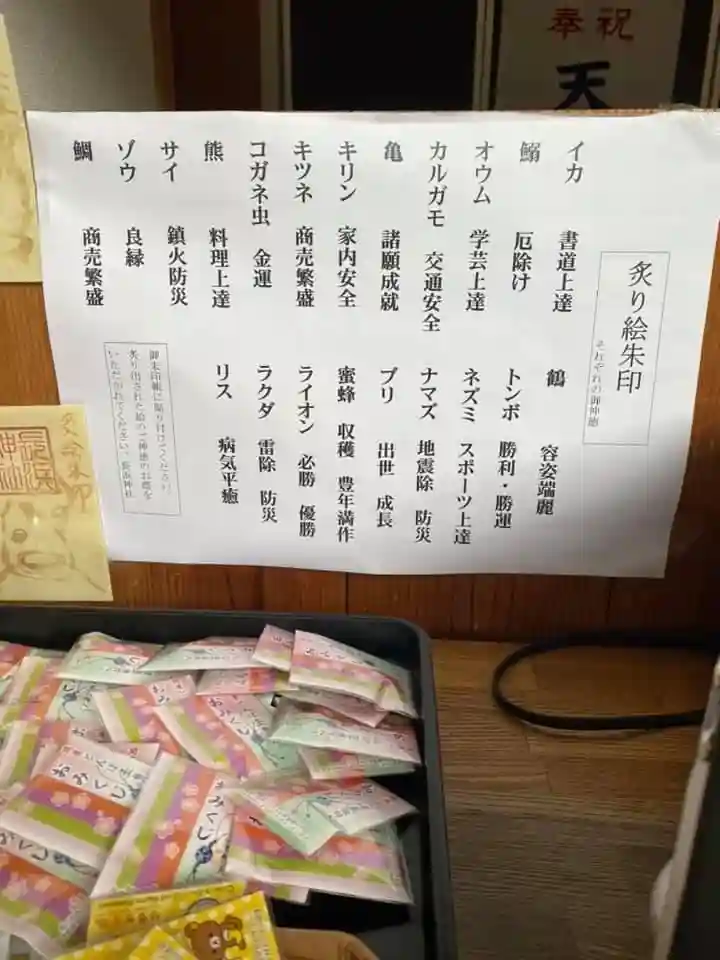 奉祝
天
炙り絵朱印
それぞれの御神徳
イカ 書道上達
鰯 厄除け
オウム 学芸上達
カルガモ 交通安全
亀 諸願成就
キリン 家内安全
キツネ 商売繁盛
コガネ虫 金運
熊 料理上達
サイ 鎮火防災
ゾウ 良縁
鯛 商売繁盛
鶴 容姿端麗
トンボ 勝利・勝運
ネズミ スポーツ上達
ナマズ 地震除 防災
ブリ 出世 成長
蜜蜂 収穫 豊年満作
ライオン 必勝 優勝
ラクダ 雷除 防災
リス 病気平癒
御朱印帳に貼り付けてください。
炙り出された絵のご神徳のお蔭を
いただかれてください。長浜神社
炙り絵朱印
長浜
神社
おみくじ
おみくじ
おみくじ
おみくじ